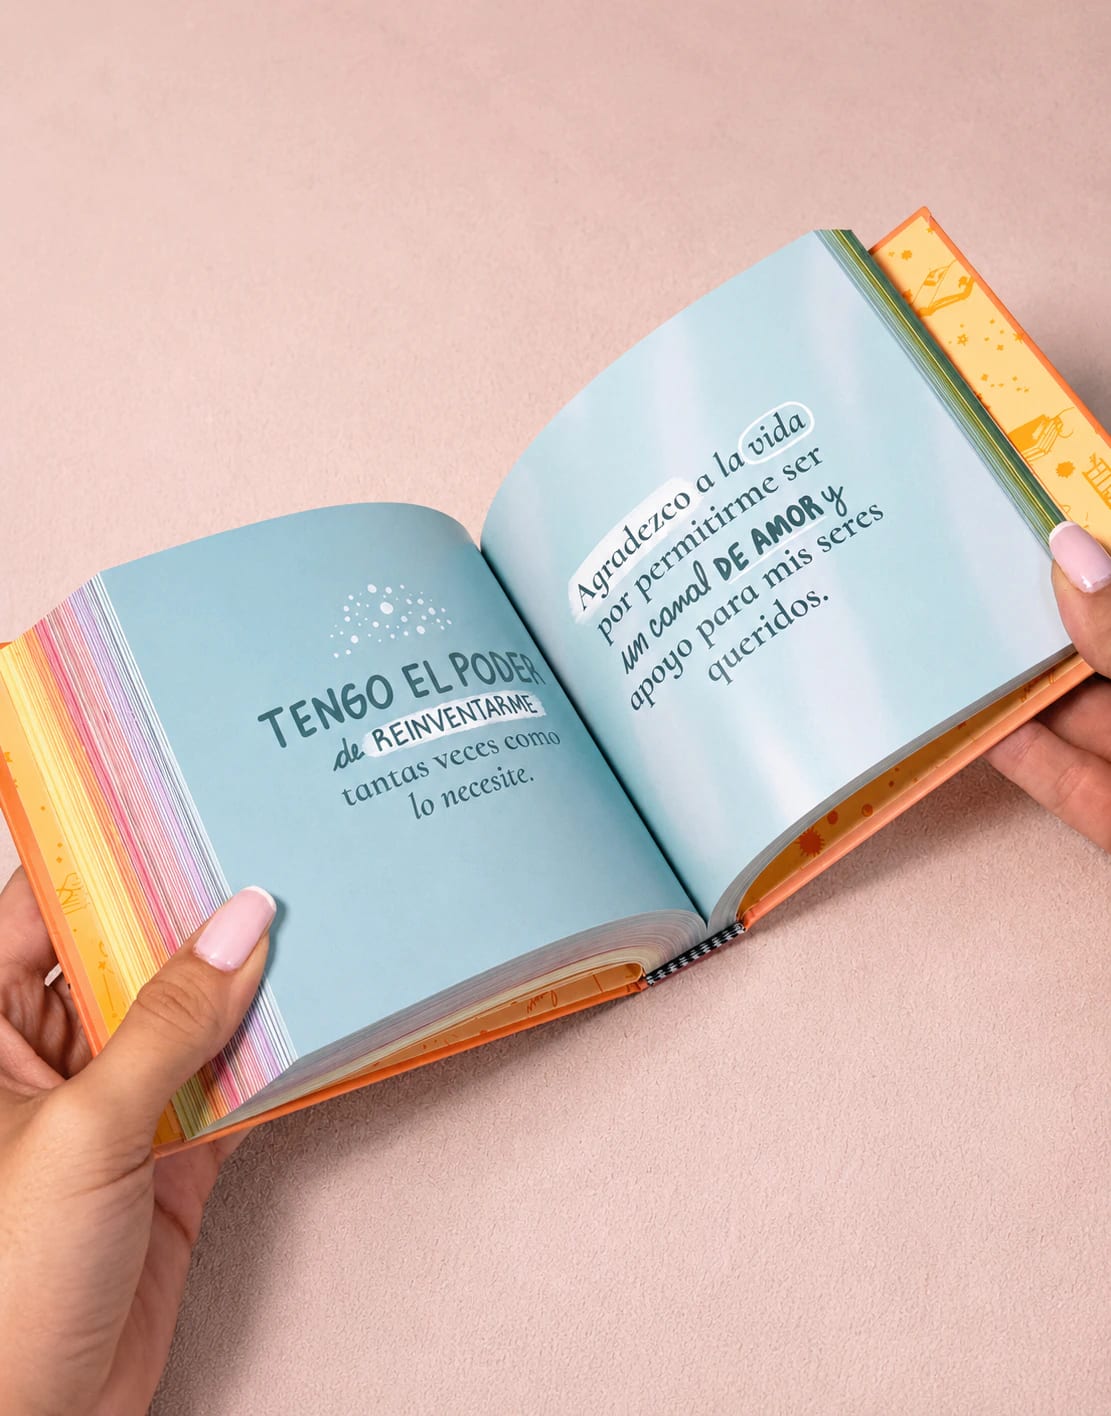 TENGO EL PODER
de REINVENTARME
tantas veces como
lo necesite.
Agradezco a la vida
por permitirme ser
un canal DE AMOR y
apoyo para mis seres
queridos.